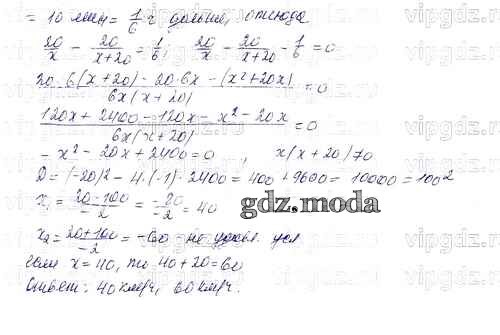 = 10 мин = 1/6 ч дольше, отсюда
20/x - 20/(x+20) = 1/6; 20/x - 20/(x+20) - 1/6 = 0
(20·6(x+20) - 20·6x - (x²+20x))/(6x(x+20)) = 0
(120x + 2400 - 120x - x² - 20x)/(6x(x+20)) = 0
- x² - 20x + 2400 = 0, x(x+20) ≠ 0
D = (-20)² - 4·(-1)·2400 = 400 + 9600 = 10000 = 100²
x₁ = (20-100)/(-2) = -80/(-2) = 40
gdz.moda
x₂ = (20+100)/(-2) = -60 - не удовл. усл
если x = 40, то 40 + 20 = 60
Ответ: 40 км/ч, 60 км/ч.
vipgdz.ru